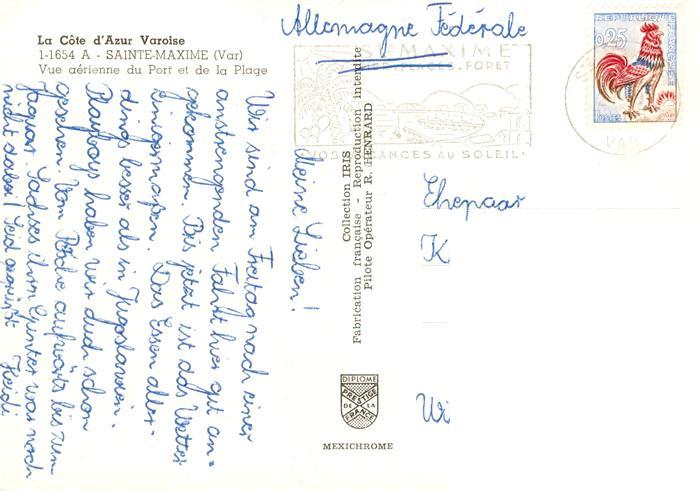 La Côte d'Azur Varoise
1-1654 A - SAINTE-MAXIME (Var)
Vue aérienne du Port et de la Plage
Allemagne Fédérale
STE MAXIME
FORET
VOS VACANCES AU SOLEIL
REPUBLIQUE FRANÇAISE
0,25
POSTES
VAR
Meine Lieben!
Wir sind am Freitag nach einer
anstrengenden Fahrt hier gut an=
gekommen. Bis jetzt ist das Wetter
einigermaßen. Das Essen aller-
dings besser als in Jugoslavien.
Playboys haben wir auch schon
gesehen. Vom Pferde aufwärts bis zum
Jaguar. Sachses ihrm Günter war noch
nicht dabei! Seid gegrüßt
Heidi
Collection IRIS
Fabrication française - Reproduction interdite
Pilote Opérateur R. HENRARD
Ehepaar
K
DIPLOME
PRESTIGE
DE LA
FRANCE
MEXICHROME